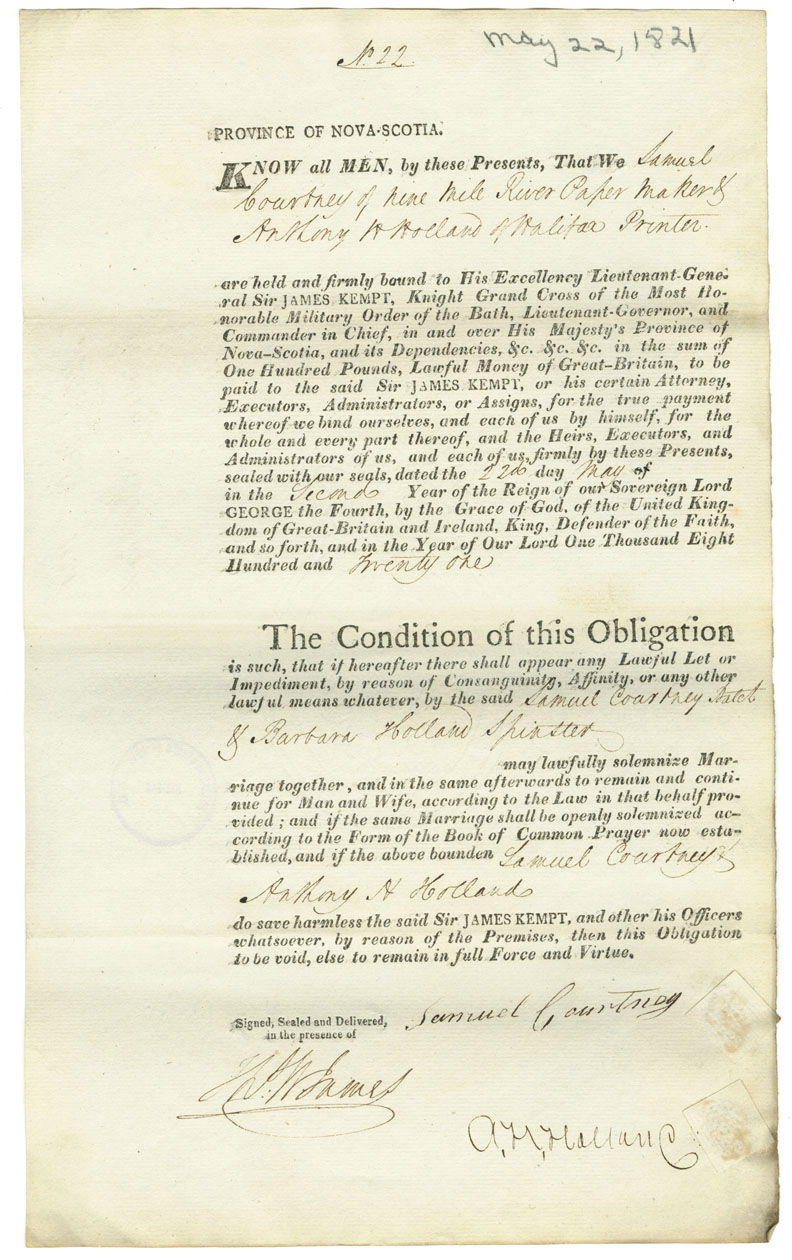 No 22
May 22, 1821
PROVINCE OF NOVA-SCOTIA.
KNOW all MEN, by these Presents, That We Samuel
Courtney of Nine Mile River Paper Maker &
Anthony H Holland of Halifax Printer.
are held and firmly bound to His Excellency Lieutenant-Gene-
ral Sir JAMES KEMPT, Knight Grand Cross of the Most Ho-
norable Military Order of the Bath, Lieutenant-Governor, and
Commander in Chief, in and over His Majesty's Province of
Nova-Scotia, and its Dependencies, &c. &c. &c. in the sum of
One Hundred Pounds, Lawful Money of Great-Britain, to be
paid to the said Sir JAMES KEMPT, or his certain Attorney,
Executors, Administrators, or Assigns, for the true payment
whereof we bind ourselves, and each of us by himself, for the
whole and every part thereof, and the Heirs, Executors, and
Administrators of us, and each of us, firmly by these Presents,
sealed with our seals, dated the 22d day May of
in the Second Year of the Reign of our Sovereign Lord
GEORGE the Fourth, by the Grace of God, of the United King-
dom of Great-Britain and Ireland, King, Defender of the Faith,
and so forth, and in the Year of Our Lord One Thousand Eight
Hundred and Twenty One
The Condition of this Obligation
is such, that if hereafter there shall appear any Lawful Let or
Impediment, by reason of Consanguinity, Affinity, or any other
lawful means whatever, by the said Samuel Courtney Batch
& Barbara Holland Spinster
may lawfully solemnize Mar-
riage together, and in the same afterwards to remain and conti-
nue for Man and Wife, according to the Law in that behalf pro-
vided; and if the same Marriage shall be openly solemnized ac-
cording to the Form of the Book of Common Prayer now esta-
blished, and if the above bounden Samuel Courtney &
Anthony H Holland
do save harmless the said Sir JAMES KEMPT, and other his Officers
whatsoever, by reason of the Premises, then this Obligation
to be void, else to remain in full Force and Virtue.
Signed, Sealed and Delivered,
in the presence of
Samuel Courtney
James
A. H. Holland